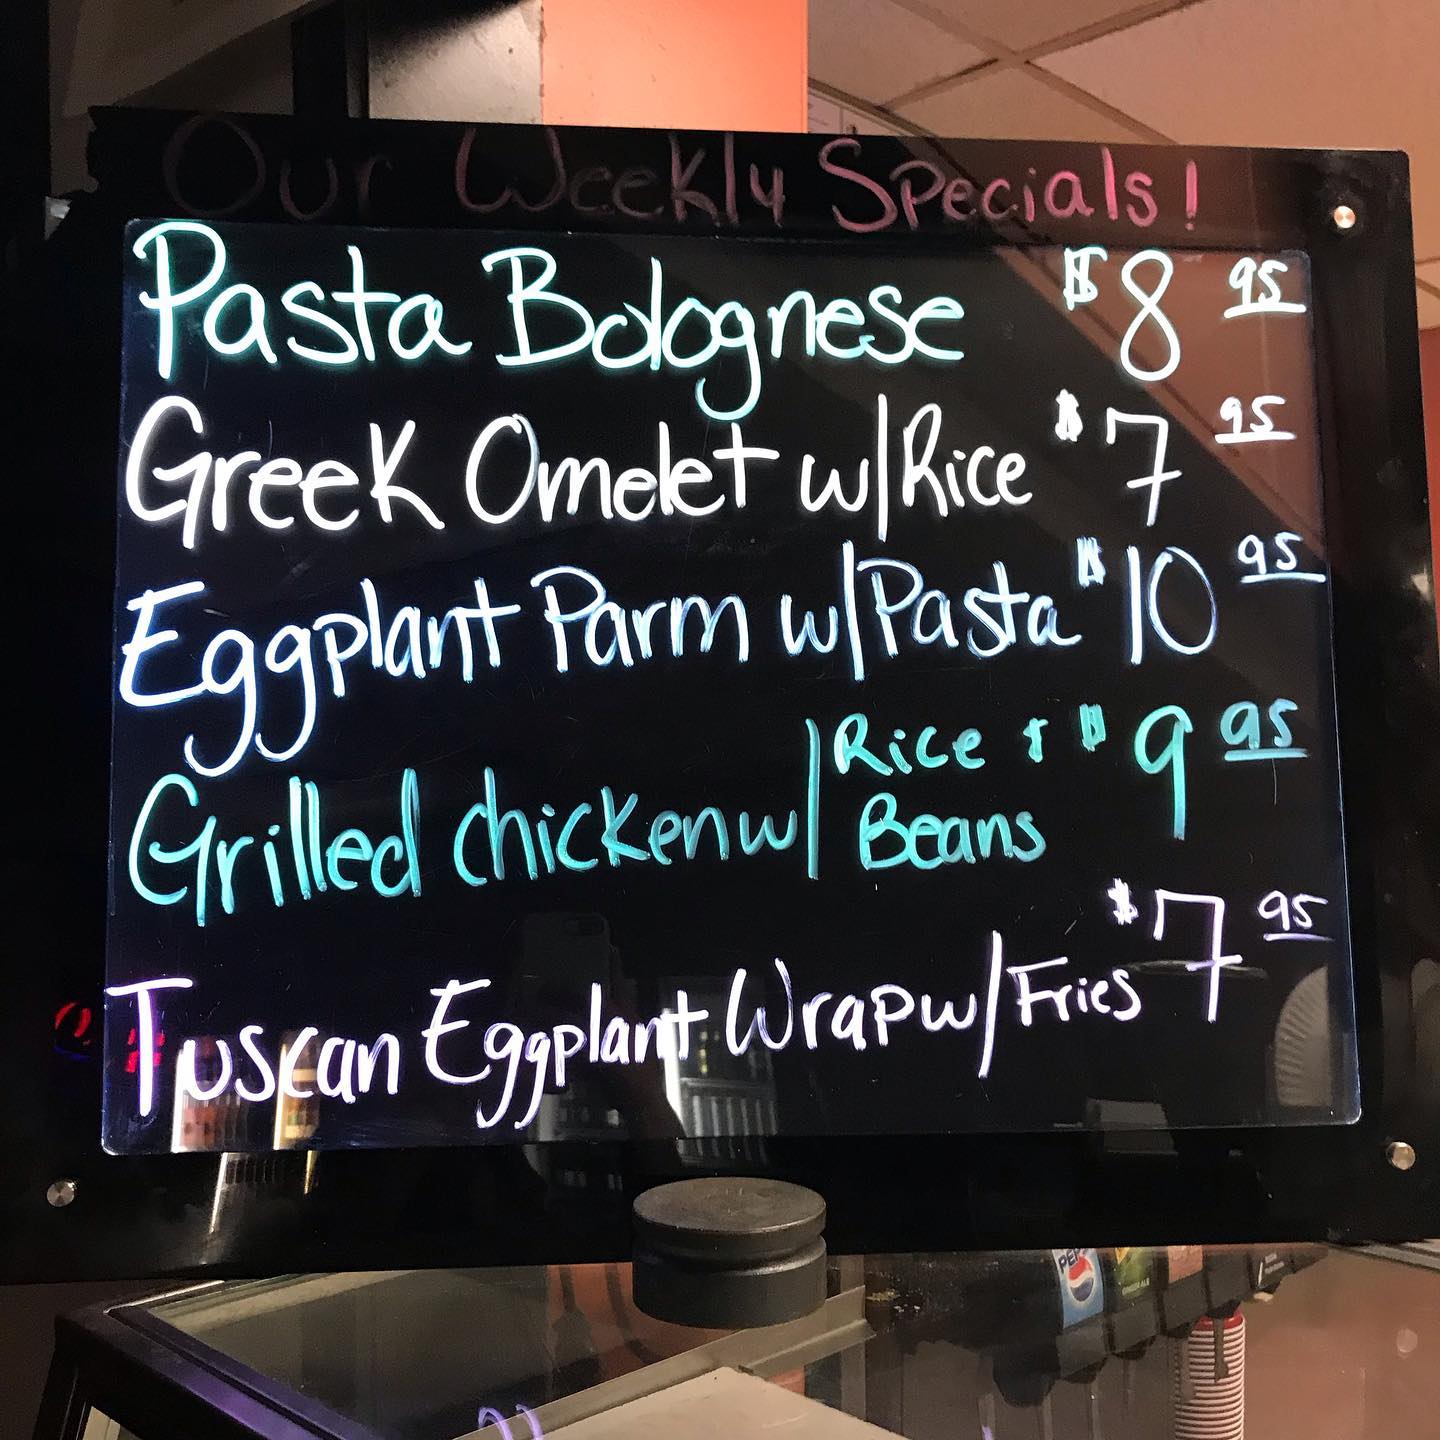 Our Weekly Specials!
Pasta Bolognese $8 95
Greek Omelet w/Rice $7 95
Eggplant Parm w/Pasta $10 95
Grilled chicken w/ Rice + Beans $9 95
Tuscan Eggplant Wrap w/Fries $7 95
PEPSI